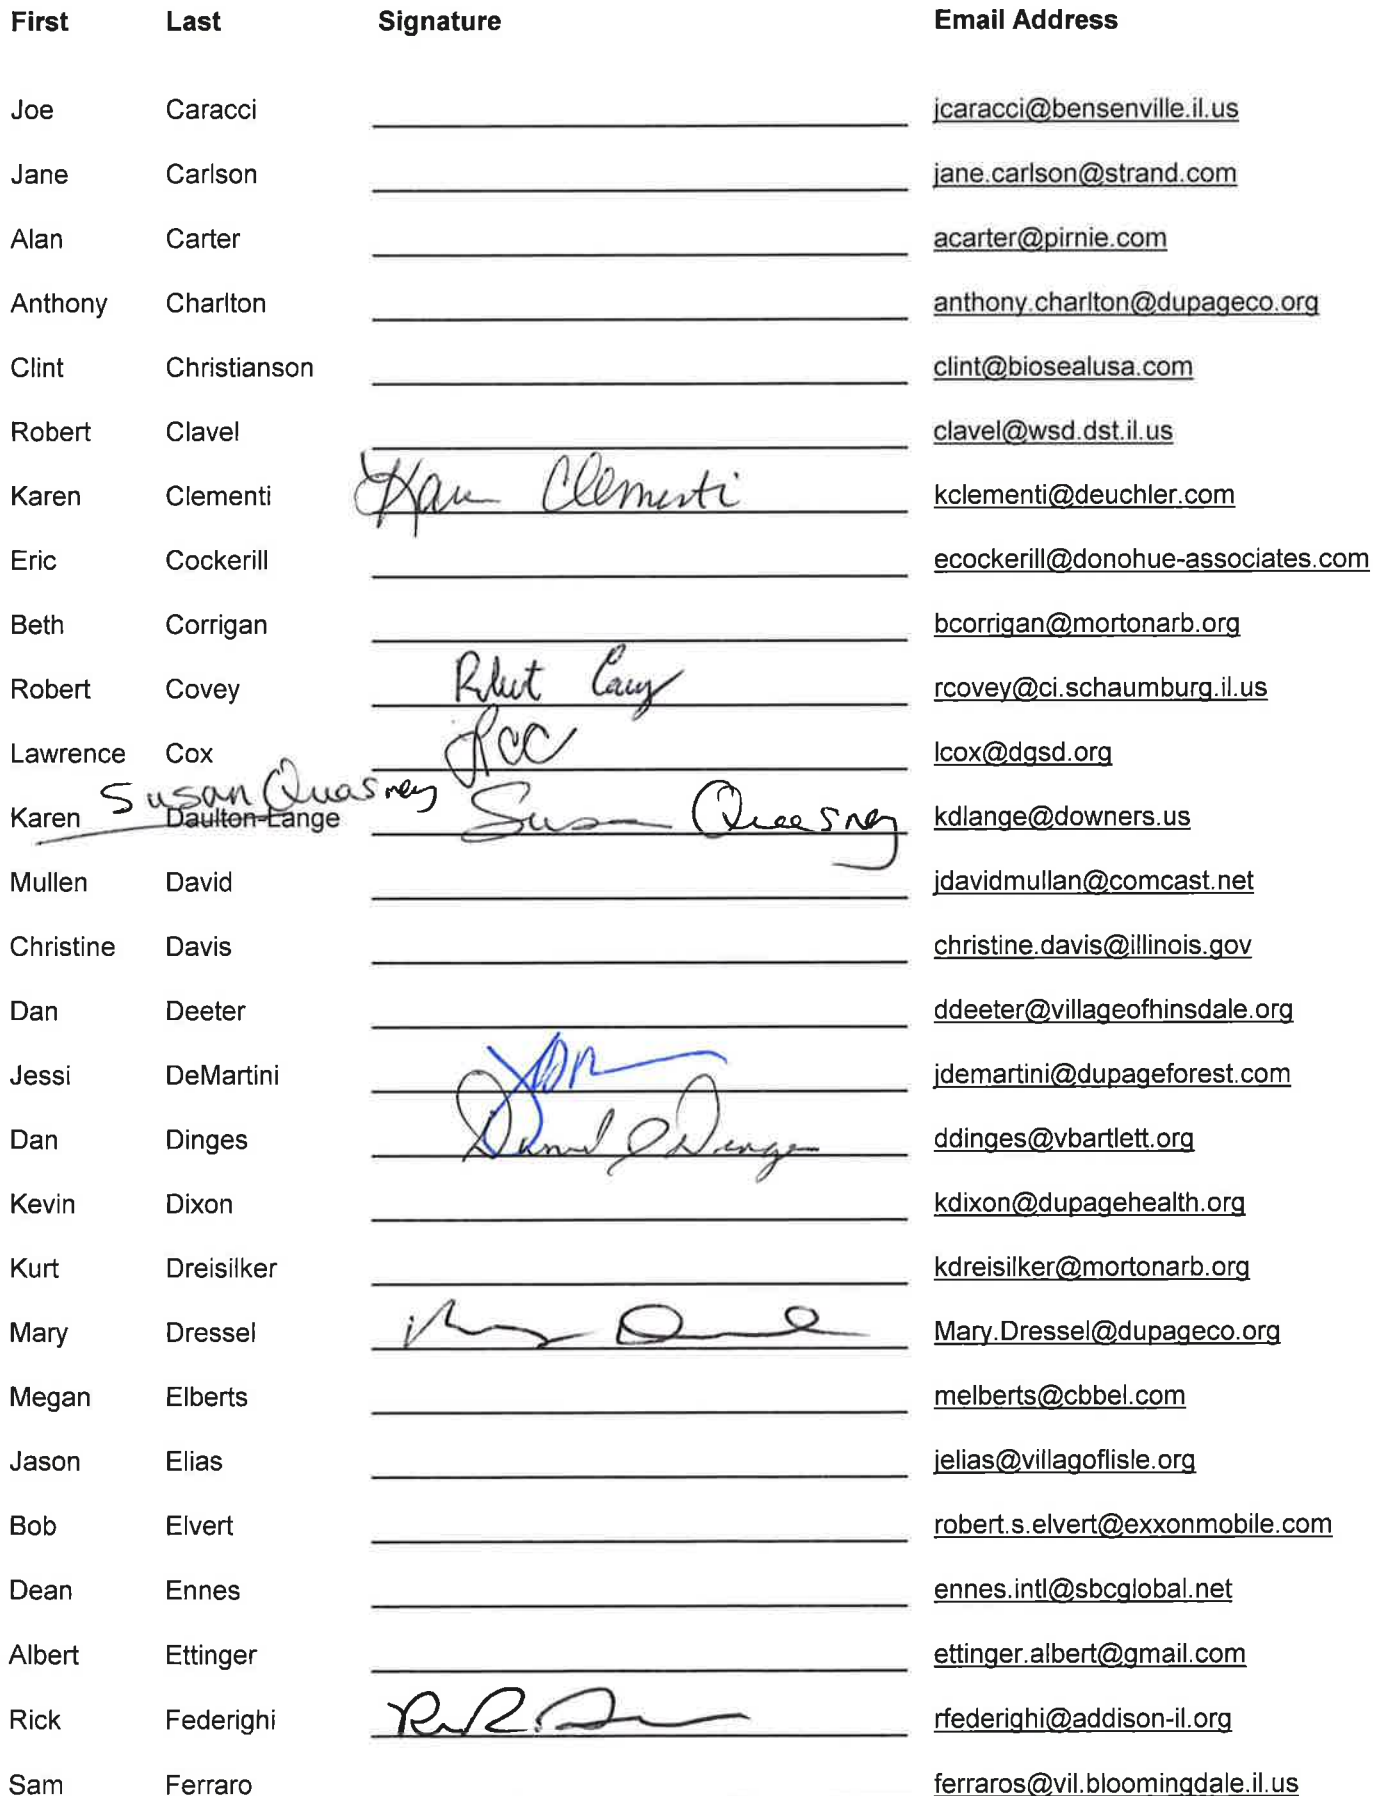 First Last Signature Email Address
Joe Caracci jcaracci@bensenville.il.us
Jane Carlson jane.carlson@strand.com
Alan Carter acarter@pirnie.com
Anthony Charlton anthony.charlton@dupageco.org
Clint Christianson clint@biosealusa.com
Robert Clavel clavel@wsd.dst.il.us
Karen Clementi Karen Clementi kclementi@deuchler.com
Eric Cockerill ecockerill@donohue-associates.com
Beth Corrigan bcorrigan@mortonarb.org
Robert Covey Robert Covey rcovey@ci.schaumburg.il.us
Lawrence Cox LCC lcox@dgsd.org
Susan Quasney
Karen Daulton-Lange Susan Quasney kdlange@downers.us
Mullen David jdavidmullan@comcast.net
Christine Davis christine.davis@illinois.gov
Dan Deeter ddeeter@villageofhinsdale.org
Jessi DeMartini jdemartini@dupageforest.com
Dan Dinges Daniel J Dinges ddinges@vbartlett.org
Kevin Dixon kdixon@dupagehealth.org
Kurt Dreisilker kdreisilker@mortonarb.org
Mary Dressel Mary.Dressel@dupageco.org
Megan Elberts melberts@cbbel.com
Jason Elias jelias@villagoflisle.org
Bob Elvert robert.s.elvert@exxonmobile.com
Dean Ennes ennes.intl@sbcglobal.net
Albert Ettinger ettinger.albert@gmail.com
Rick Federighi rfederighi@addison-il.org
Sam Ferraro ferraros@vil.bloomingdale.il.us